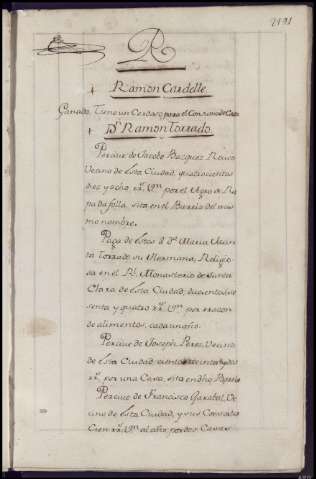 2191
R
Ramon Cardelle
Ganado. Tiene un Cerdaso para el Consumo de Casa
Dn. Ramon Torrado
Percive de Jacobo Bazquez Reino
Vecino de esta Ciudad, quatrocientos
diez y ocho rr. Vn. por el Agro de
sita en el Barrio del mis
mo nombre.
Paga de estos a Da. Maria
Torrado su Hermana, Religio
sa en el Rl. Monasterio de Santa
Clara de esta Ciudad, ducientos se
senta y quatro rr. Vn. por razon
de alimentos, cada un año.
Percive de Joseph Perez Vecino
de esta Ciudad, ciento treinta y dos
rr. por una Casa, sita en dho Barrio
Percive de Francisco Garabal, Ve
cino de esta Ciudad, y sus Consortes
Cien rr. Vn. al año, por dos Casas